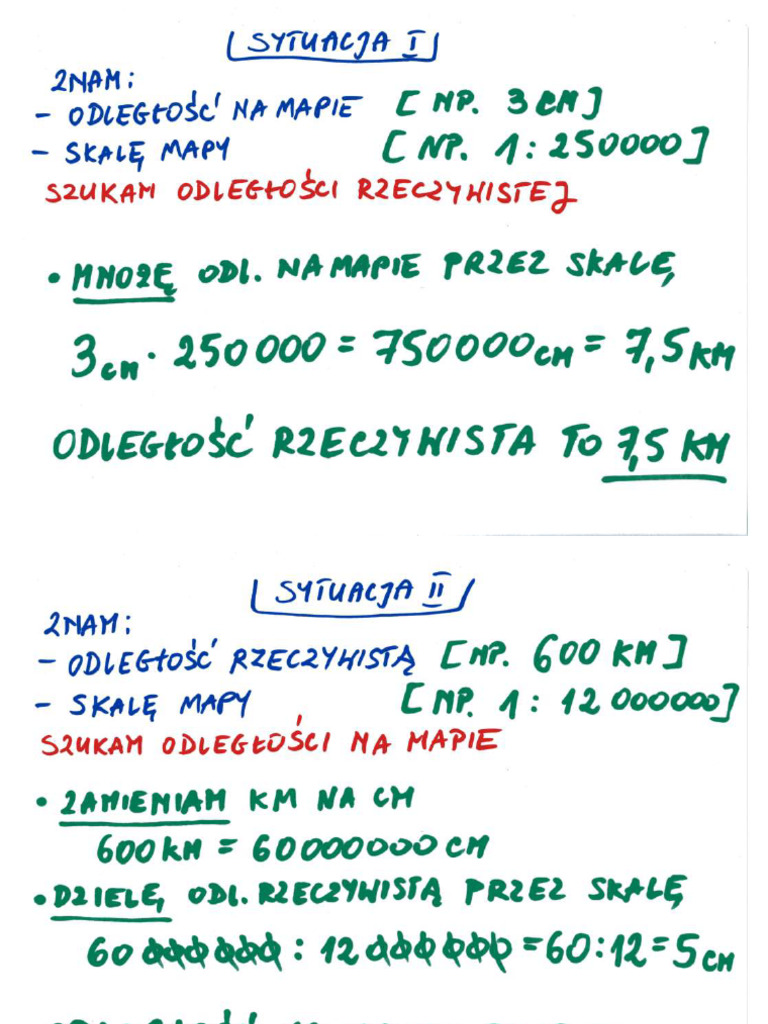 SYTUACJA I
ZNAM:
- ODLEGŁOŚĆ NA MAPIE [NP. 3 CM]
- SKALĘ MAPY [NP. 1:250000]
SZUKAM ODLEGŁOŚCI RZECZYWISTEJ
• MNOŻĘ ODL. NA MAPIE PRZEZ SKALĘ
3 CM · 250 000 = 750000 CM = 7,5 KM
ODLEGŁOŚĆ RZECZYWISTA TO 7,5 KM
SYTUACJA II
ZNAM:
- ODLEGŁOŚĆ RZECZYWISTĄ [NP. 600 KM]
- SKALĘ MAPY [NP. 1:12 000000]
SZUKAM ODLEGŁOŚCI NA MAPIE
• ZAMIENIAM KM NA CM
600 KM = 60000000 CM
• DZIELĘ ODL. RZECZYWISTĄ PRZEZ SKALĘ
60 000000 : 12 000000 = 60:12 = 5 CM